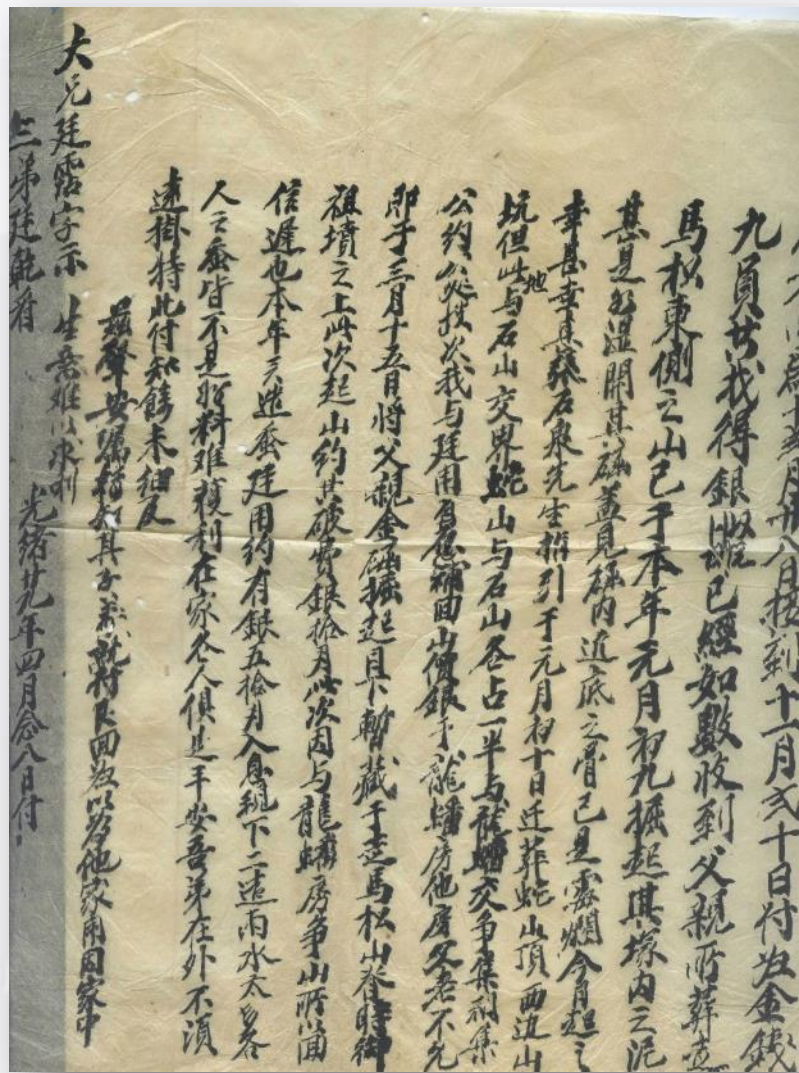 十二月廿八日接到十一月弍十日付回金錢
九員共找得銀 已經如數收到父親所葬走
馬松東側之山已于本年元月初九掘起其塚內之泥
甚是水濕開其砳蓋見砳內近底之骨已是霉爛今日起之
幸甚幸甚蒙石泉先生指引于元月初十日迁葬蛇山頂西边山
坑但此地与石山交界蛇山与石山各占一半与龍蟠交爭集祠集
公約處投次我与廷用自愿補回山價銀于龍蟠房他房父老不允
即于三月十五日將父親金砳掘起目下暫藏于走馬松山脊時御
祖墳之上此次起山約共破費銀拾 此次因与龍蟠房爭山所以回
信遲也本年 造蚕廷用約有銀五拾 入息 下二造雨水太多各
人之蚕皆不是 料难獲利在家各人俱是平安吾弟在外不須
遠掛特此付知餘未細及
並聲 囑 其 付 回 以為他家用因家中
生意难以求利
大兄廷霑字示
三弟廷乾看
光緒廿九年四月念八日付